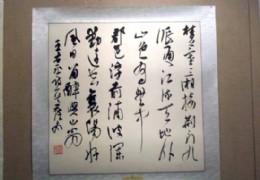 楚塞三湘接荆门九
派通江流天地外
山色有无中
郡邑浮前浦波澜
动远空襄阳好
风日留醉与山翁